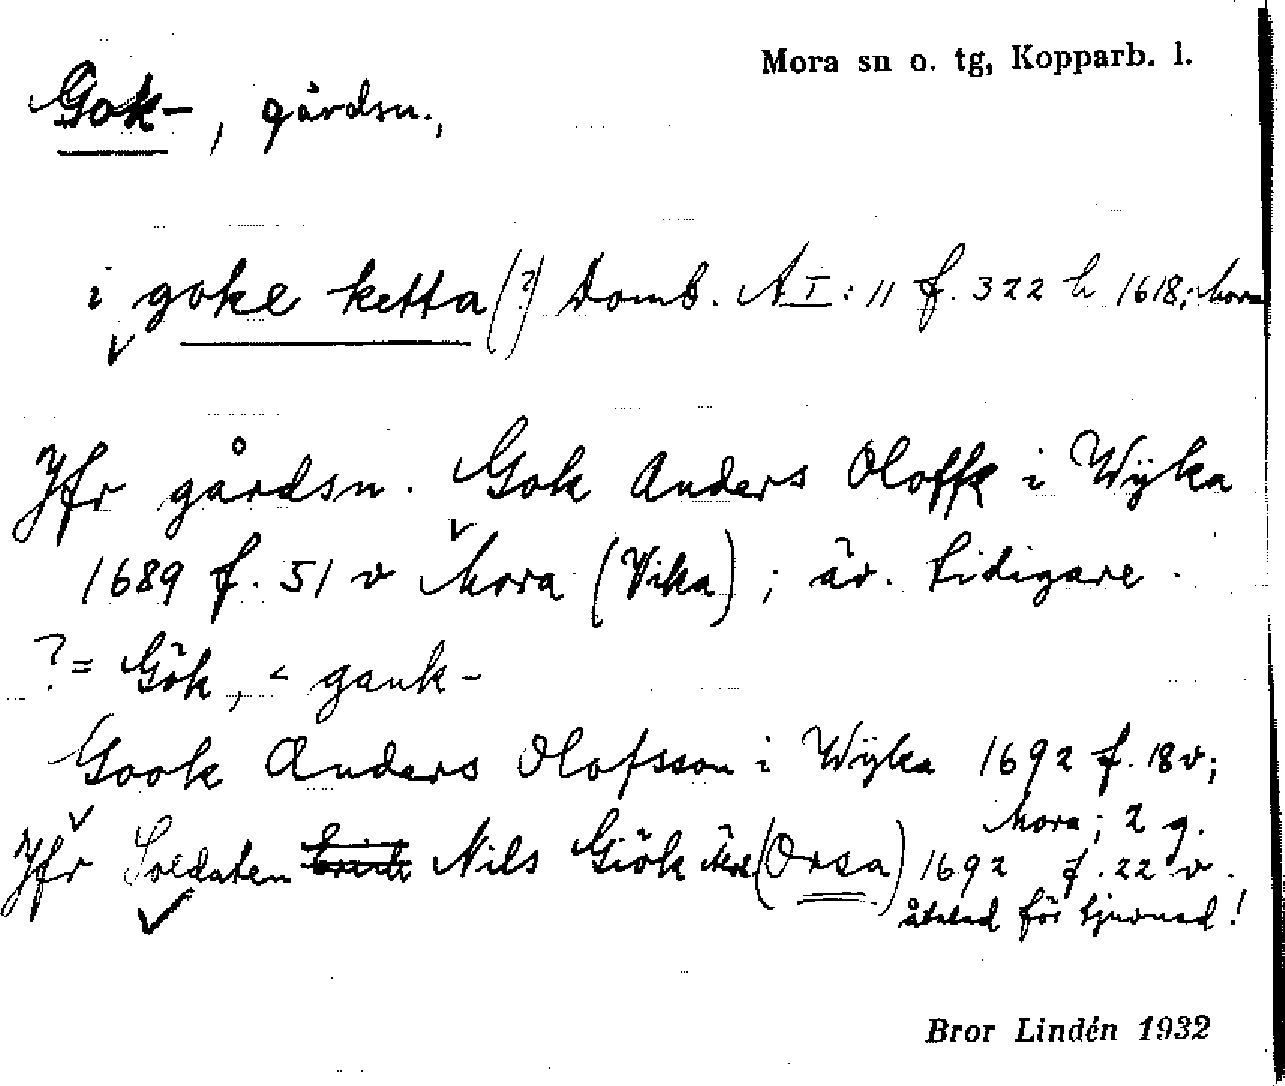 Mora sn o. tg, Kopparb. l.
Gok-, gårdsn.,
i goke ketta (?) Domb. A I: 11 f. 322 h 1618; Mora
Jfr gårdsn. Gok Anders Oloffz i Wÿka
1689 f. 51 v Mora (Vika); äv. tidigare.
? = Gök, < gauk-
Gook Anders Olofsson i Wÿka 1692 f. 18 v;
Mora; 2 g.
Jfr Soldaten Nils Giök (Orsa) 1692 f. 22 v.
åtalad för tjuvnad!
Bror Lindén 1932